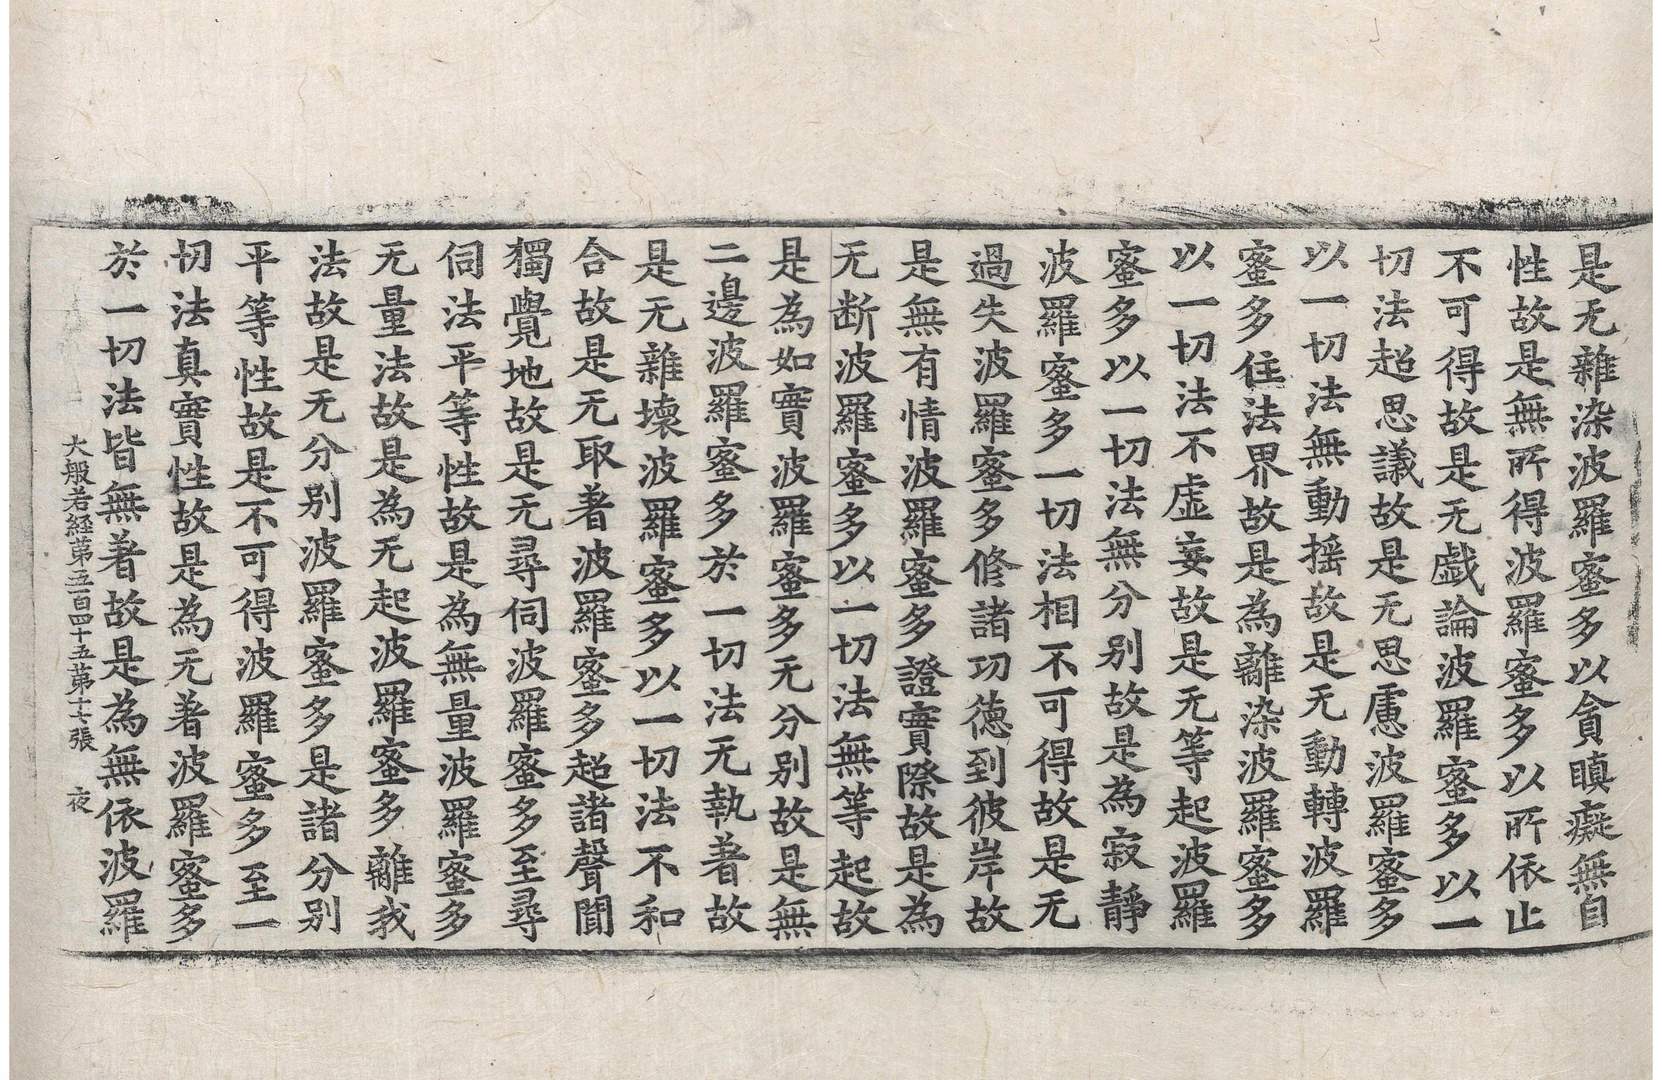 是无雜染波羅蜜多以貪瞋癡無自
性故是無所得波羅蜜多以所依止
不可得故是无戱論波羅蜜多以一
切法超思議故是无思慮波羅蜜多
以一切法無動揺故是无動轉波羅
蜜多住法界故是為離染波羅蜜多
以一切法不虛妄故是无等起波羅
蜜多以一切法無分别故是為寂靜
波羅蜜多一切法相不可得故是无
過失波羅蜜多修諸功德到彼岸故
是無有情波羅蜜多證實際故是為
无断波羅蜜多以一切法無等起故
是為如實波羅蜜多无分别故是無
二邊波羅蜜多於一切法无執著故
是无雜壞波羅蜜多以一切法不和
合故是无取著波羅蜜多超諸聲聞
獨覺地故是无尋伺波羅蜜多至尋
伺法平等性故是為無量波羅蜜多
无量法故是為无起波羅蜜多離我
法故是无分别波羅蜜多是諸分别
平等性故是不可得波羅蜜多至一
切法真實性故是為无著波羅蜜多
於一切法皆無著故是為無依波羅
大般若経苐五百四十五苐十七張 夜